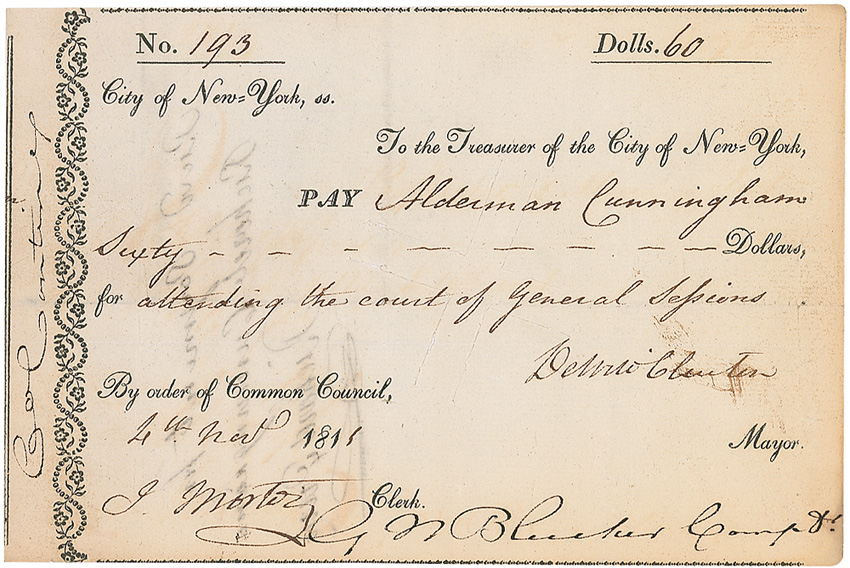 No. 193
Dolls. 60
City of New=York, ss.
To the Treasurer of the City of New=York,
PAY Alderman Cunningham
Sixty - - - - - - - - Dollars,
for attending the court of General Sessions
DeWitt Clinton
By order of Common Council,
4th Nov 1811
Mayor.
J. Morton Clerk.
G N Bleecker Compr